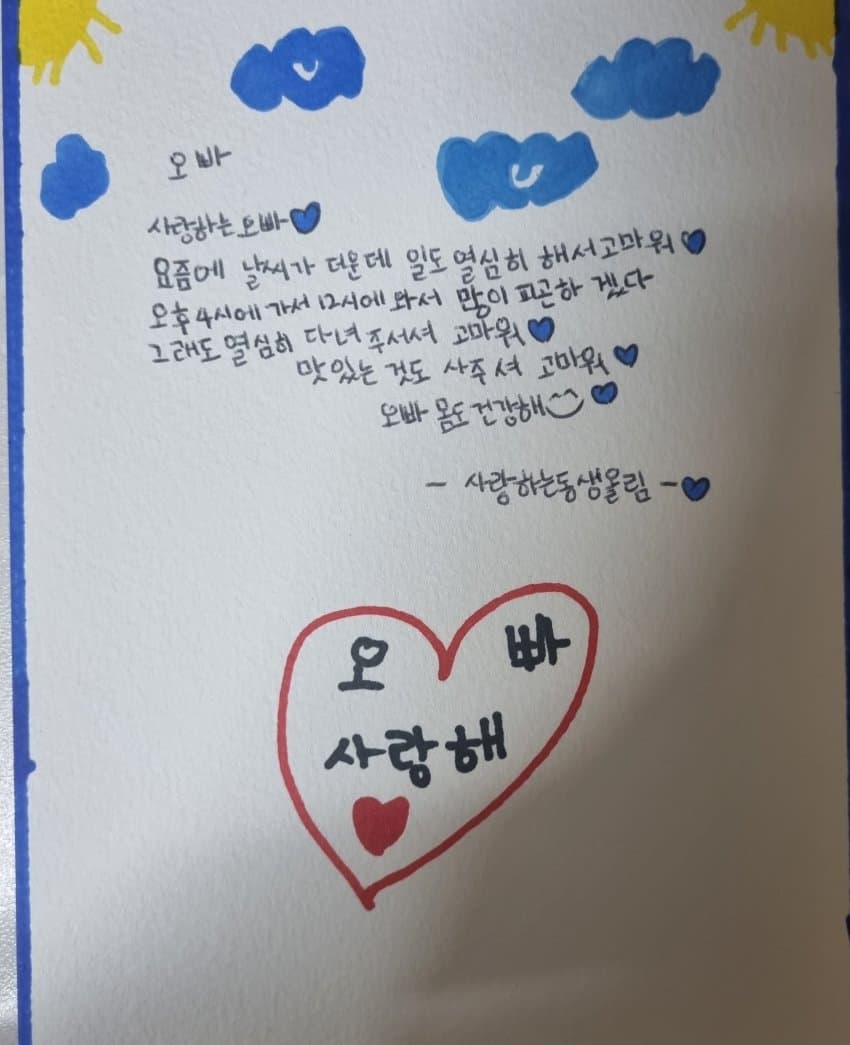 오빠
사랑하는 오빠
요즘에 날씨가 더운데 일도 열심히 해서 고마워
오후 4시에 가서 12시에 와서 많이 피곤하 겠다
그래도 열심히 다녀 주서셔 고마워
맛있는 것도 사주셔 고마워
오빠 몸도 건강해
- 사랑하는동생올림 -
오 빠
사랑해